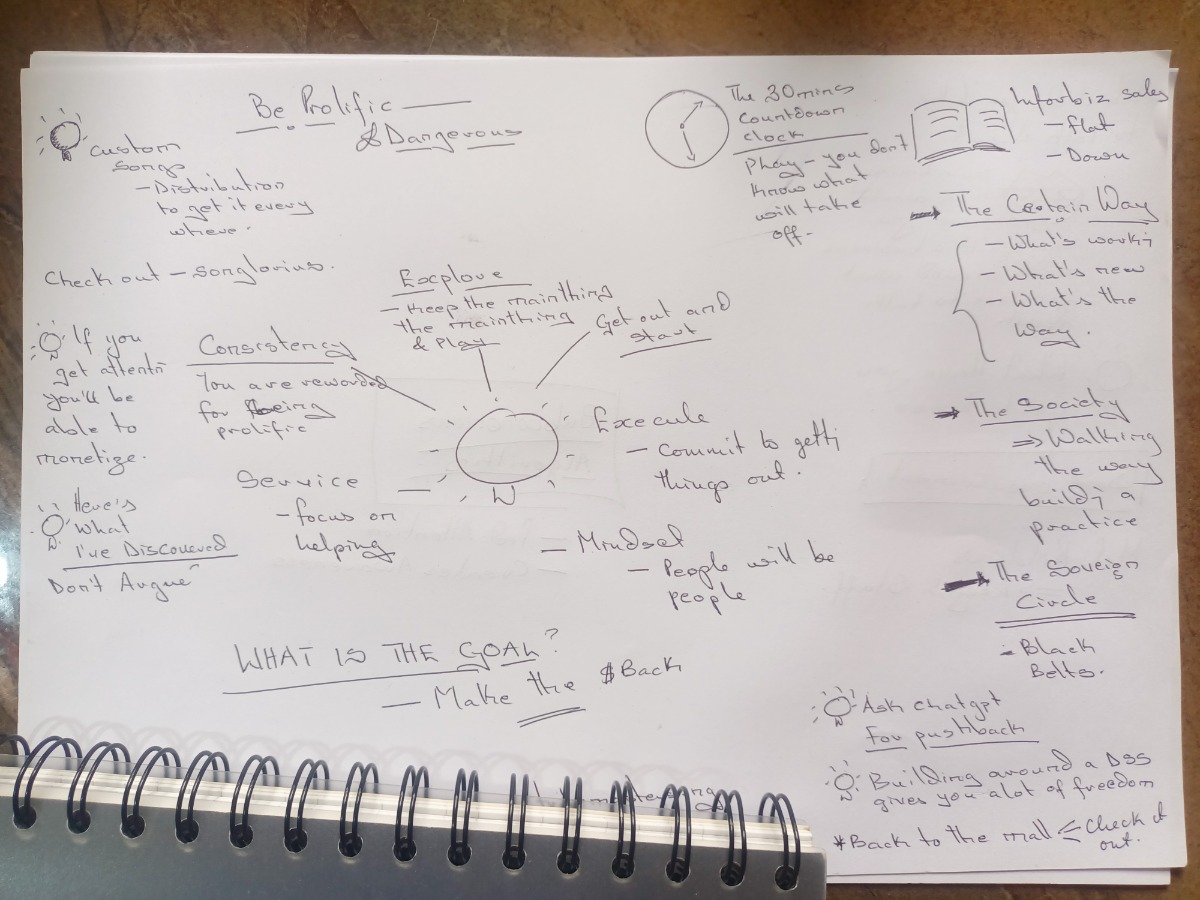 Be Prolific
& Dangerous
Custom
Songs
- Distribution
to get it every
where.
Check out - songlorius.
If you
get attenti
you'll be
able to
monetize.
Here's
What
I've Discovered
Don't Argue
Consistency
You are rewarded
for being
prolific
Service
- focus on
helping
Explore
- Keep the mainthing
the mainthing
& Play
Get out and
start
Execute
- Commit to getti
things out.
- Mindset
- People will be
people
WHAT IS THE GOAL?
- Make the $Back
The 30mins
Countdown
clock
Play - you don't
know what
will take
off.
Inforbiz sales
- flat
- Down
The Certain Way
- What's worki
- What's new
- What's the
way.
The Society
⇒ Walking
the way
buildi a
practice
The Soveign
Circle
- Black
Belts.
Ask chatgpt
For pushback
Building around a DSS
gives you alot of freedom
*Back to the mall < Check it
out.